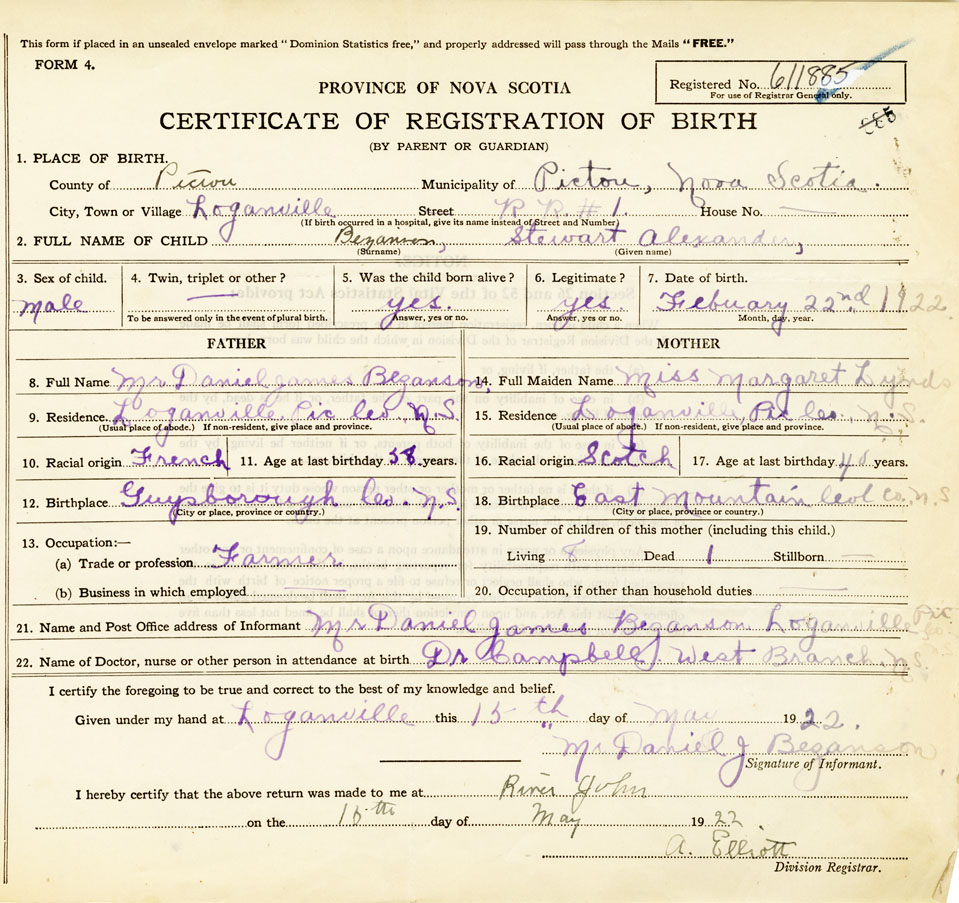 This form if placed in an unsealed envelope marked "Dominion Statistics free," and properly addressed will pass through the Mails "FREE."
FORM 4.
Registered No. 611885
For use of Registrar General only.
PROVINCE OF NOVA SCOTIA
CERTIFICATE OF REGISTRATION OF BIRTH
(BY PARENT OR GUARDIAN)
1. PLACE OF BIRTH.
County of Pictou Municipality of Pictou, Nova Scotia.
City, Town or Village Loganville Street R R. # 1. House No.
(If birth occurred in a hospital, give its name instead of Street and Number)
2. FULL NAME OF CHILD Bezanson, Stewart Alexander,
(Surname) (Given name)
3. Sex of child. 4. Twin, triplet or other? 5. Was the child born alive? 6. Legitimate? 7. Date of birth.
Male — yes. yes. Febuary 22nd. 1922.
To be answered only in the event of plural birth. Answer, yes or no. Answer, yes or no. Month, day, year.
FATHER MOTHER
8. Full Name Mr Daniel James Bezanson, 14. Full Maiden Name Miss Margaret Lynds
9. Residence. Loganville, Pic Co. N.S. 15. Residence Loganville, Pic Co. N.S.
(Usual place of abode.) If non-resident, give place and province. (Usual place of abode.) If non-resident, give place and province.
10. Racial origin French 11. Age at last birthday 58. years. 16. Racial origin Scotch 17. Age at last birthday years.
12. Birthplace Guysborough Co. N.S. 18. Birthplace East Mountain Col Co. N S
(City or place, province or country.) (City or place, province or country.)
19. Number of children of this mother (including this child.)
13. Occupation:—
Living 8 Dead 1 Stillborn —
(a) Trade or profession Farmer
(b) Business in which employed — 20. Occupation, if other than household duties —
21. Name and Post Office address of Informant Mr Daniel James Bezanson Loganville Pic
22. Name of Doctor, nurse or other person in attendance at birth Dr Campbell. West Branch, N.S.
I certify the foregoing to be true and correct to the best of my knowledge and belief.
Given under my hand at Loganville this 15 th day of May 1922.
Mr Daniel J Bezanson
Signature of Informant.
I hereby certify that the above return was made to me at River John
on the 15th day of May 1922
A. Elliott
Division Registrar.